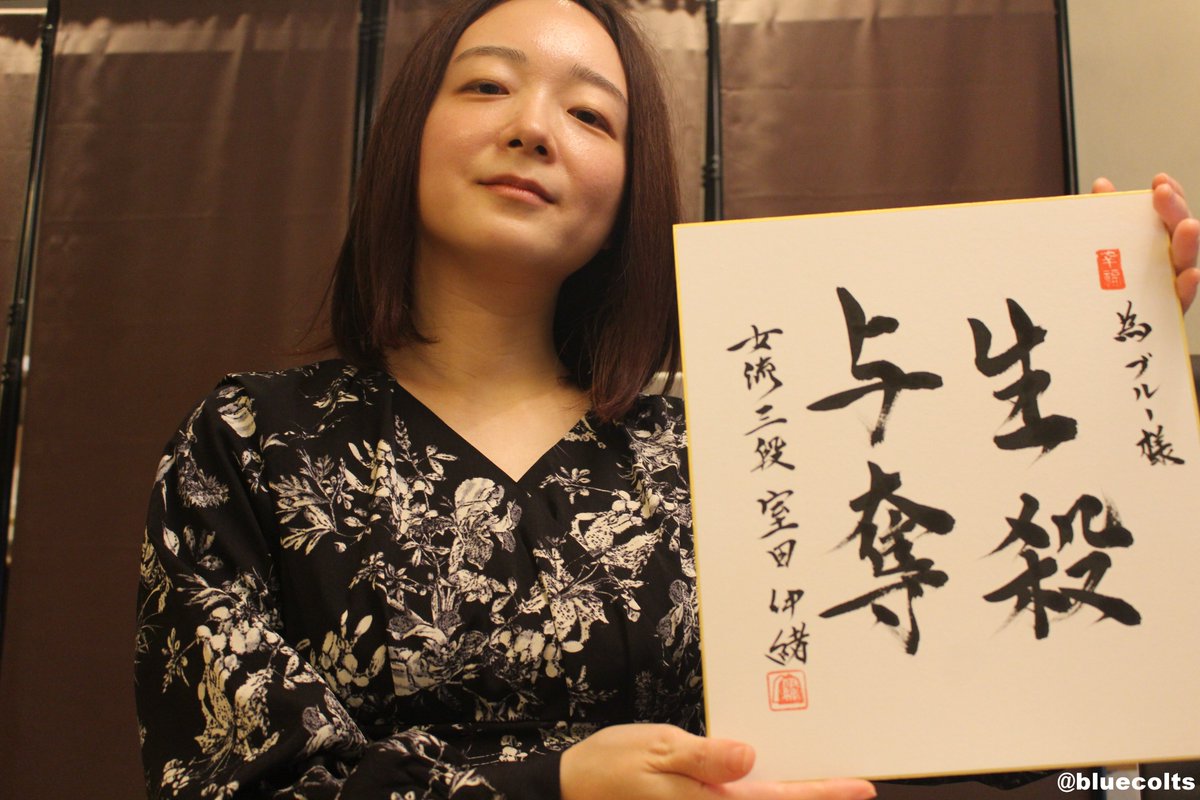 為ブルー様
生殺
与奪
女流三段 室田伊緒
@bluecolts